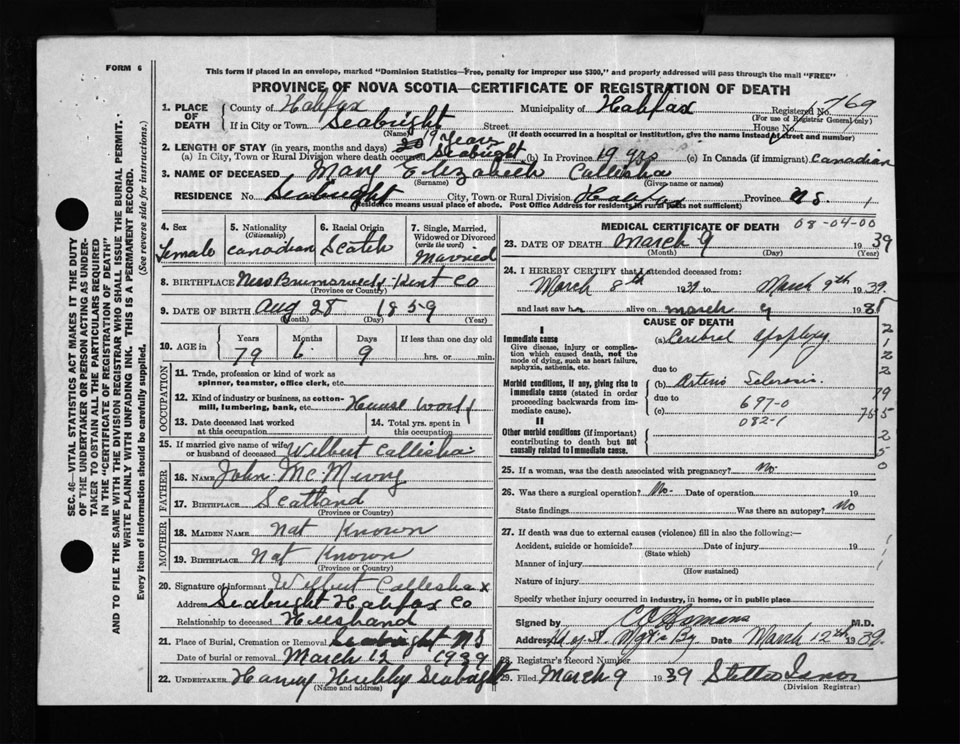 FORM 6
This form if placed in an envelope, marked "Dominion Statistics—Free, penalty for improper use $300," and properly addressed will pass through the mail "FREE"
PROVINCE OF NOVA SCOTIA—CERTIFICATE OF REGISTRATION OF DEATH
1. PLACE OF DEATH County of Halifax Municipality of Halifax Registered No. 769
(For use of Registrar General only)
If in City or Town Seabright Street House No.
(Name) (If death occurred in a hospital or institution, give the name instead of street and number)
2. LENGTH OF STAY (in years, months and days) 19 Years
(a) In City, Town or Rural Division where death occurred Seabright (b) In Province 19 yrs (c) In Canada (if immigrant) Canadian
3. NAME OF DECEASED Mary Elizabeth Callisha
(Surname) (Given name or names)
RESIDENCE No. Seabright City, Town or Rural Division Halifax Province N.S. 1
(Residence means usual place of abode. Post Office Address for residents in rural parts not sufficient)
4. Sex Female
5. Nationality (Citizenship) Canadian
6. Racial Origin Scotch
7. Single, Married, Widowed or Divorced (write the word) Married
8. BIRTHPLACE New Brunswick Kent Co
(Province or Country)
9. DATE OF BIRTH Aug 28 1859
(Month) (Day) (Year)
10. AGE in Years Months Days If less than one day old
79 6 9 hrs. or min.
OCCUPATION
11. Trade, profession or kind of work as spinner, teamster, office clerk, etc.
12. Kind of industry or business, as cotton-mill, lumbering, bank, etc. House Work
13. Date deceased last worked at this occupation
14. Total yrs. spent in this occupation
15. If married give name of wife or husband of deceased Wilbert Callisha
FATHER
16. NAME John Mc
17. BIRTHPLACE Scatland
(Province or Country)
MOTHER
18. MAIDEN NAME Nat Known
19. BIRTHPLACE Nat Known
(Province or Country)
20. Signature of informant Wilbert Callisha x
Address Seabright Halifax Co
Relationship to deceased Husband
21. Place of Burial, Cremation or Removal Seabright N S
Date of burial or removal March 12 1939
22. UNDERTAKER Harvey Hubley Seabright
(Name and address)
MEDICAL CERTIFICATE OF DEATH 08-04-00
23. DATE OF DEATH March 9 1939
(Month) (Day) (Year)
24. I HEREBY CERTIFY that I attended deceased from:
March 8th 1939 to March 9th 1939.
and last saw her alive on March 9 193
CAUSE OF DEATH
I
Immediate cause
Give disease, injury or complication which caused death, not the mode of dying, such as heart failure, asphyxia, asthenia, etc.
(a) Cerebral Apoplexy
due to
Morbid conditions, if any, giving rise to immediate cause (stated in order proceeding backwards from immediate cause).
(b) Arterio Sclerosis.
due to
(c) 697-0
082-1
II
Other morbid conditions (if important) contributing to death but not causally related to immediate cause.
2
1
2
2
79
755
2
5
0
25. If a woman, was the death associated with pregnancy? No
26. Was there a surgical operation? No Date of operation 19
State findings Was there an autopsy? No
27. If death was due to external causes (violence) fill in also the following:—
Accident, suicide or homicide? Date of injury 19
(State which)
Manner of injury
(How sustained)
Nature of injury
Specify whether injury occurred in industry, in home, or in public place
Signed by M.D.
Address Date March 12th 1939.
28. Registrar's Record Number
29. Filed March 9 1939
(Division Registrar)
SEC. 46—VITAL STATISTICS ACT MAKES IT THE DUTY OF THE UNDERTAKER OR PERSON ACTING AS UNDERTAKER TO OBTAIN ALL THE PARTICULARS REQUIRED IN THE "CERTIFICATE OF REGISTRATION OF DEATH" AND TO FILE THE SAME WITH THE DIVISION REGISTRAR WHO SHALL ISSUE THE BURIAL PERMIT.
WRITE PLAINLY WITH UNFADING INK. THIS IS A PERMANENT RECORD.
Every item of information should be carefully supplied. (See reverse side for instructions.)